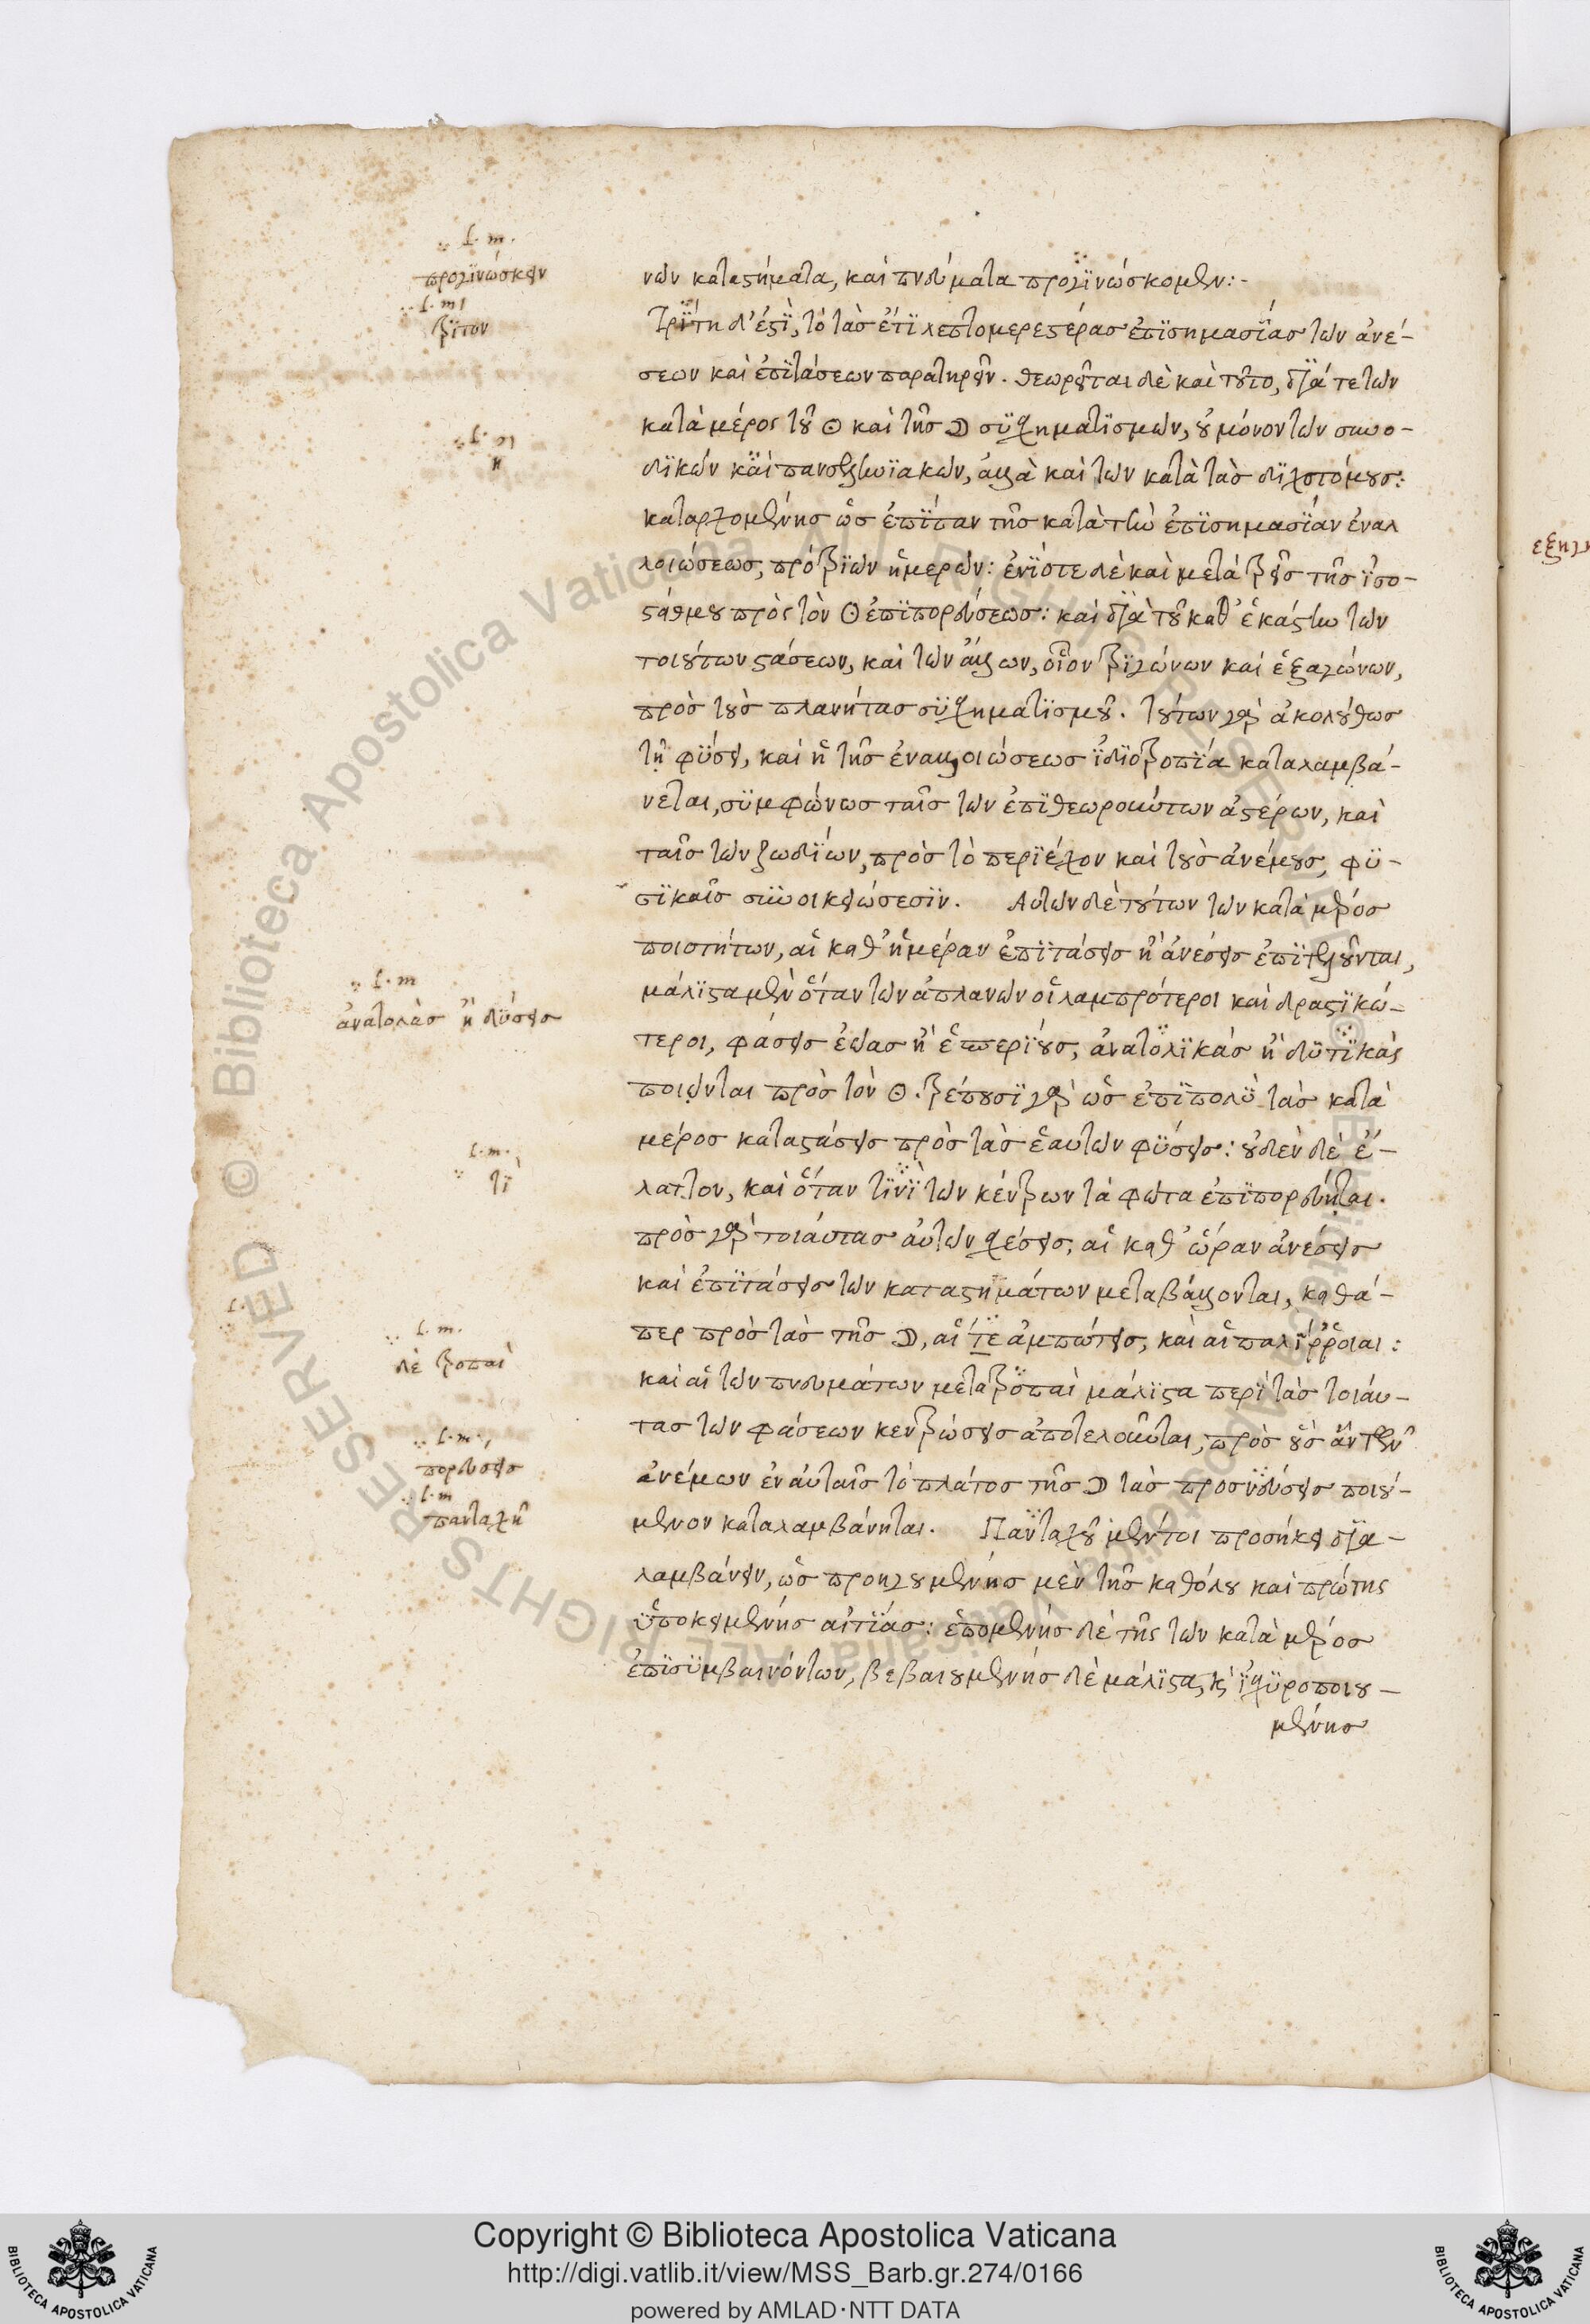 l. m.
προγινώσκειν
l. m.
τρίτον
l. m
ἢ
l. m
ἀνατολὰσ ἢ δύσεισ
l. m.
τῒ
l.
l. m.
δὲ τροπαὶ
l. m.
πορεύσεισ
l. m
πανταχῆ
νῶν καταστήματα, καὶ πνεύματα προγινώσκομεν:-
Τρίτη δ' ἐστὶ, τὸ τὰσ ἔτι λεπτομερεστέρασ ἐπισημασίασ τῶν ἀνέ-
σεων καὶ ἐπιτάσεων παρατηρεῖν. θεωρεῖται δὲ καὶ τοῦτο, διά τε τῶν
κατὰ μέροσ τοῦ ☉ καὶ τῆσ ☽ συσχηματισμῶν, οὐ μόνον τῶν συνο-
δικῶν καὶ πανσεληνιακῶν, ἀλλὰ καὶ τῶν κατὰ τὰσ διχοτόμουσ:
καταρχομένησ ὡσ ἐπίπαν τῆσ κατὰ τὴν ἐπισημασίαν ἐναλ
λοιώσεωσ, πρὸ τριῶν ἡμερῶν: ἐνίοτε δὲ καὶ μετὰ τρεῖσ τῆσ ἰσο-
στάθμου πρὸσ τὸν ☉ ἐπιπορεύσεωσ: καὶ διὰ τοῦ καθ' ἑκάστην τῶν
τοιούτων στάσεων, καὶ τῶν ἄλλων, οἷον τριγώνων καὶ ἑξαγώνων,
πρὸσ τοὺσ πλανήτασ συσχηματισμοῦ. τούτων γὰρ ἀκολούθωσ
τῇ φύσει, καὶ ἡ τῆσ ἐναλλοιώσεωσ ἰδιοτροπία καταλαμβά-
νεται, συμφώνωσ ταῖσ τῶν ἐπιθεωρούντων ἀστέρων, καὶ
ταῖσ τῶν ζωδίων, πρὸσ τὸ περιέχον καὶ τοὺσ ἀνέμουσ, φυ-
σικαῖσ συνοικειώσεσιν. Αὐτῶν δὲ τούτων τῶν κατὰ μέροσ
ποιοτήτων, αἱ καθ' ἡμέραν ἐπιτάσεισ ἢ ἀνέσεισ ἐπιτελοῦνται,
μάλιστα μὲν ὅταν τῶν ἀπλανῶν οἱ λαμπρότεροι καὶ δραστικώ-
τεροι, φάσεισ ἑώασ ἢ ἑσπερίουσ, ἀνατολικάσ ἢ δυτικὰσ
ποιῶνται πρὸσ τὸν ☉. τρέπουσι γὰρ ὡσ ἐπιπολὺ τὰσ κατὰ
μέροσ καταστάσεισ πρὸσ τὰσ ἑαυτῶν φύσεισ: οὐδὲν δὲ ἔ-
λαττον, καὶ ὅταν τινὶ τῶν κέντρων τὰ φῶτα ἐπιπορεύηται.
πρὸσ γὰρ τοιαύτασ αὐτῶν σχέσεισ, αἱ καθ' ὥραν ἀνέσεισ
καὶ ἐπιτάσεισ τῶν καταστημάτων μεταβάλλονται, καθά-
περ πρὸσ τὰσ τῆσ ☽, αἵ τε ἀμπώτεισ, καὶ αἱ παλίρροιαι:
καὶ αἱ τῶν πνευμάτων μετατροπαὶ μάλιστα περὶ τὰσ τοιαύ-
τασ τῶν φάσεων κεντρώσεισ ἀποτελοῦνται, πρὸσ οὓσ ἂν τῶν
ἀνέμων ἐν αὐταῖσ τὸ πλάτοσ τῆσ ☽ τὰσ προσνεύσεισ ποιού-
μενον καταλαμβάνηται. Πανταχοῦ μέντοι προσήκει δια-
λαμβάνειν, ὡσ προηγουμένησ μὲν τῆσ καθόλου καὶ πρώτησ
ὑποκειμένησ αἰτίασ: ἑπομένησ δὲ τῆσ τῶν κατὰ μέροσ
ἐπισυμβαινόντων, βεβαιουμένησ δὲ μάλιστα, κ̀ ἰσχυροποιου-
μένησ
Copyright © Biblioteca Apostolica Vaticana
http://digi.vatlib.it/view/MSS_Barb.gr.274/0166
powered by AMLAD·NTT DATA
BIBLIOTECA APOSTOLICA VATICANA
BIBLIOTECA APOSTOLICA VATICANA
Biblioteca Apostolica Vaticana ALL RIGHTS RESERVED ©